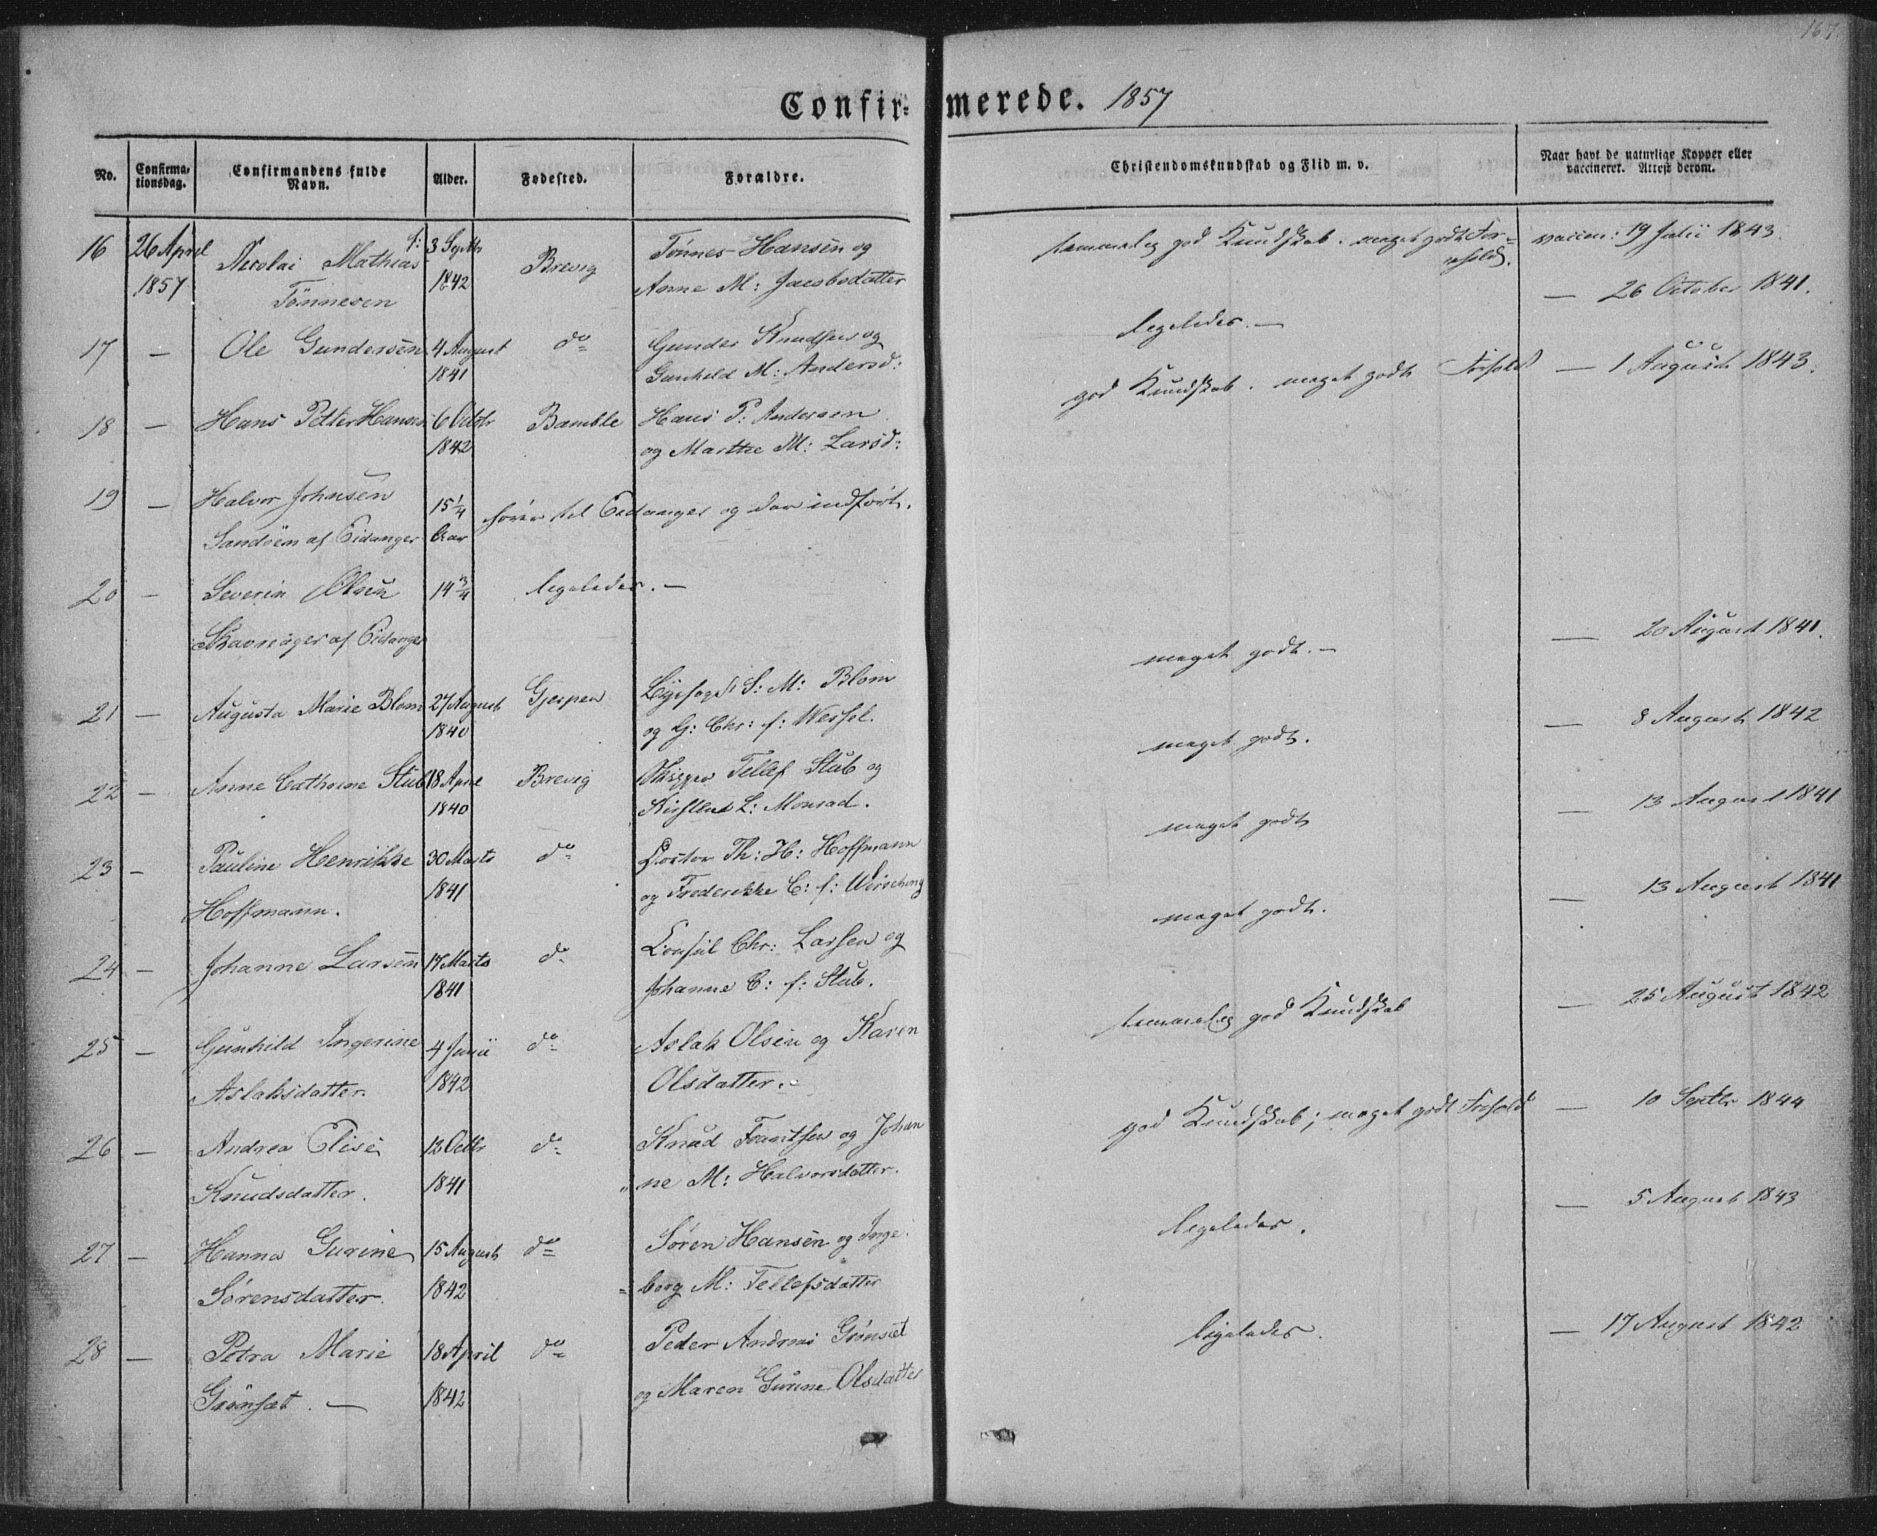 167
Confirmerede. 1857
No.
Confirmationsdag.
Confirmandens fulde Navn.
Alder.
Fødested.
Forældre.
Christendomskundskab og Flid m. v.
Naar havt de naturlige Kopper eller vaccineret. Attest derom.
16 26 April Nicolai Mathias 3 Septbr Brevig Tønnes Hansen og temmelig god Kundskab. meget godt For- vaccin: 19 Julii 1843.
1857 Tønnesen 1842 Anne M: Jacobsdatter hold.
17 — Ole Gundersen 4 August do Gunder Knudsen og ligeledes. — — 26 October 1841.
1841 Gunhild M: Andersd:
18 — Hans Petter Hansen 6 Octbr Bamble Hans P: Andersen god Kundskab. meget godt Forhold — 1 August 1843.
1842 og Marthe M: Larsd:
19 — Halvor Johnsen 15 1/4 hører til Eidanger og der indført.
Sandøen af Eidanger Aar
20 — Severin Olsen 14 3/4 ligeledes. —
af Eidanger
21 — Augusta Marie Blom 27 August Gjerpen S: M: Blom meget godt. — — 20 August 1841.
1840 og G: Chr: f: Wessel.
22 — Anne Cathrine Stub 18 April Brevig Skipper Tellef Stub og meget godt. — 8 August 1842
1840 L: Monrad.
23 — Pauline Henrikke 30 Marts do Doctor Th: H: Hoffmann meget godt — 13 August 1841
Hoffmann. 1841 og Frederikke C: f:
24 — Johanne Larsen 17 Marts do Consul Chr: Larsen og meget godt. — 13 August 1841
1841 Johanne C: f: Stub.
25 — Gunhild Ingerine 4 Junii do Aslak Olsen og Karen temmelig god Kundskab — 25 August 1842
Aslaksdatter 1842 Olsdatter.
26 — Andrea Elise 12 Octbr do Knud Frantsen og Johan god Kundskab; meget godt Forhold — 10 Septbr 1844
Knudsdatter. 1841 „ ne M: Halvorsdatter.
27 — Hanna Gurine 15 August do Søren Hansen og Inge ligeledes. — 5 August 1843
Sørensdatter. 1842 „ borg M: Tellefsdatter
28 — Petra Marie 18 April do Peder Andreas Grønsæt ligeledes. — 17 August 1842
Grønsæt. — 1842 og Maren Gurine Olsdatter